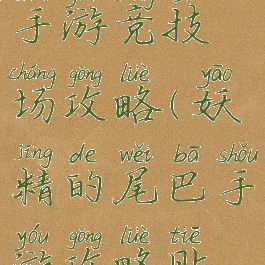 手游竞技
chǎng gōng lüè yāo
场攻略(妖
jīng de wěi bā shǒu
精的尾巴手
yóu gōng lüè tiē
游攻略贴